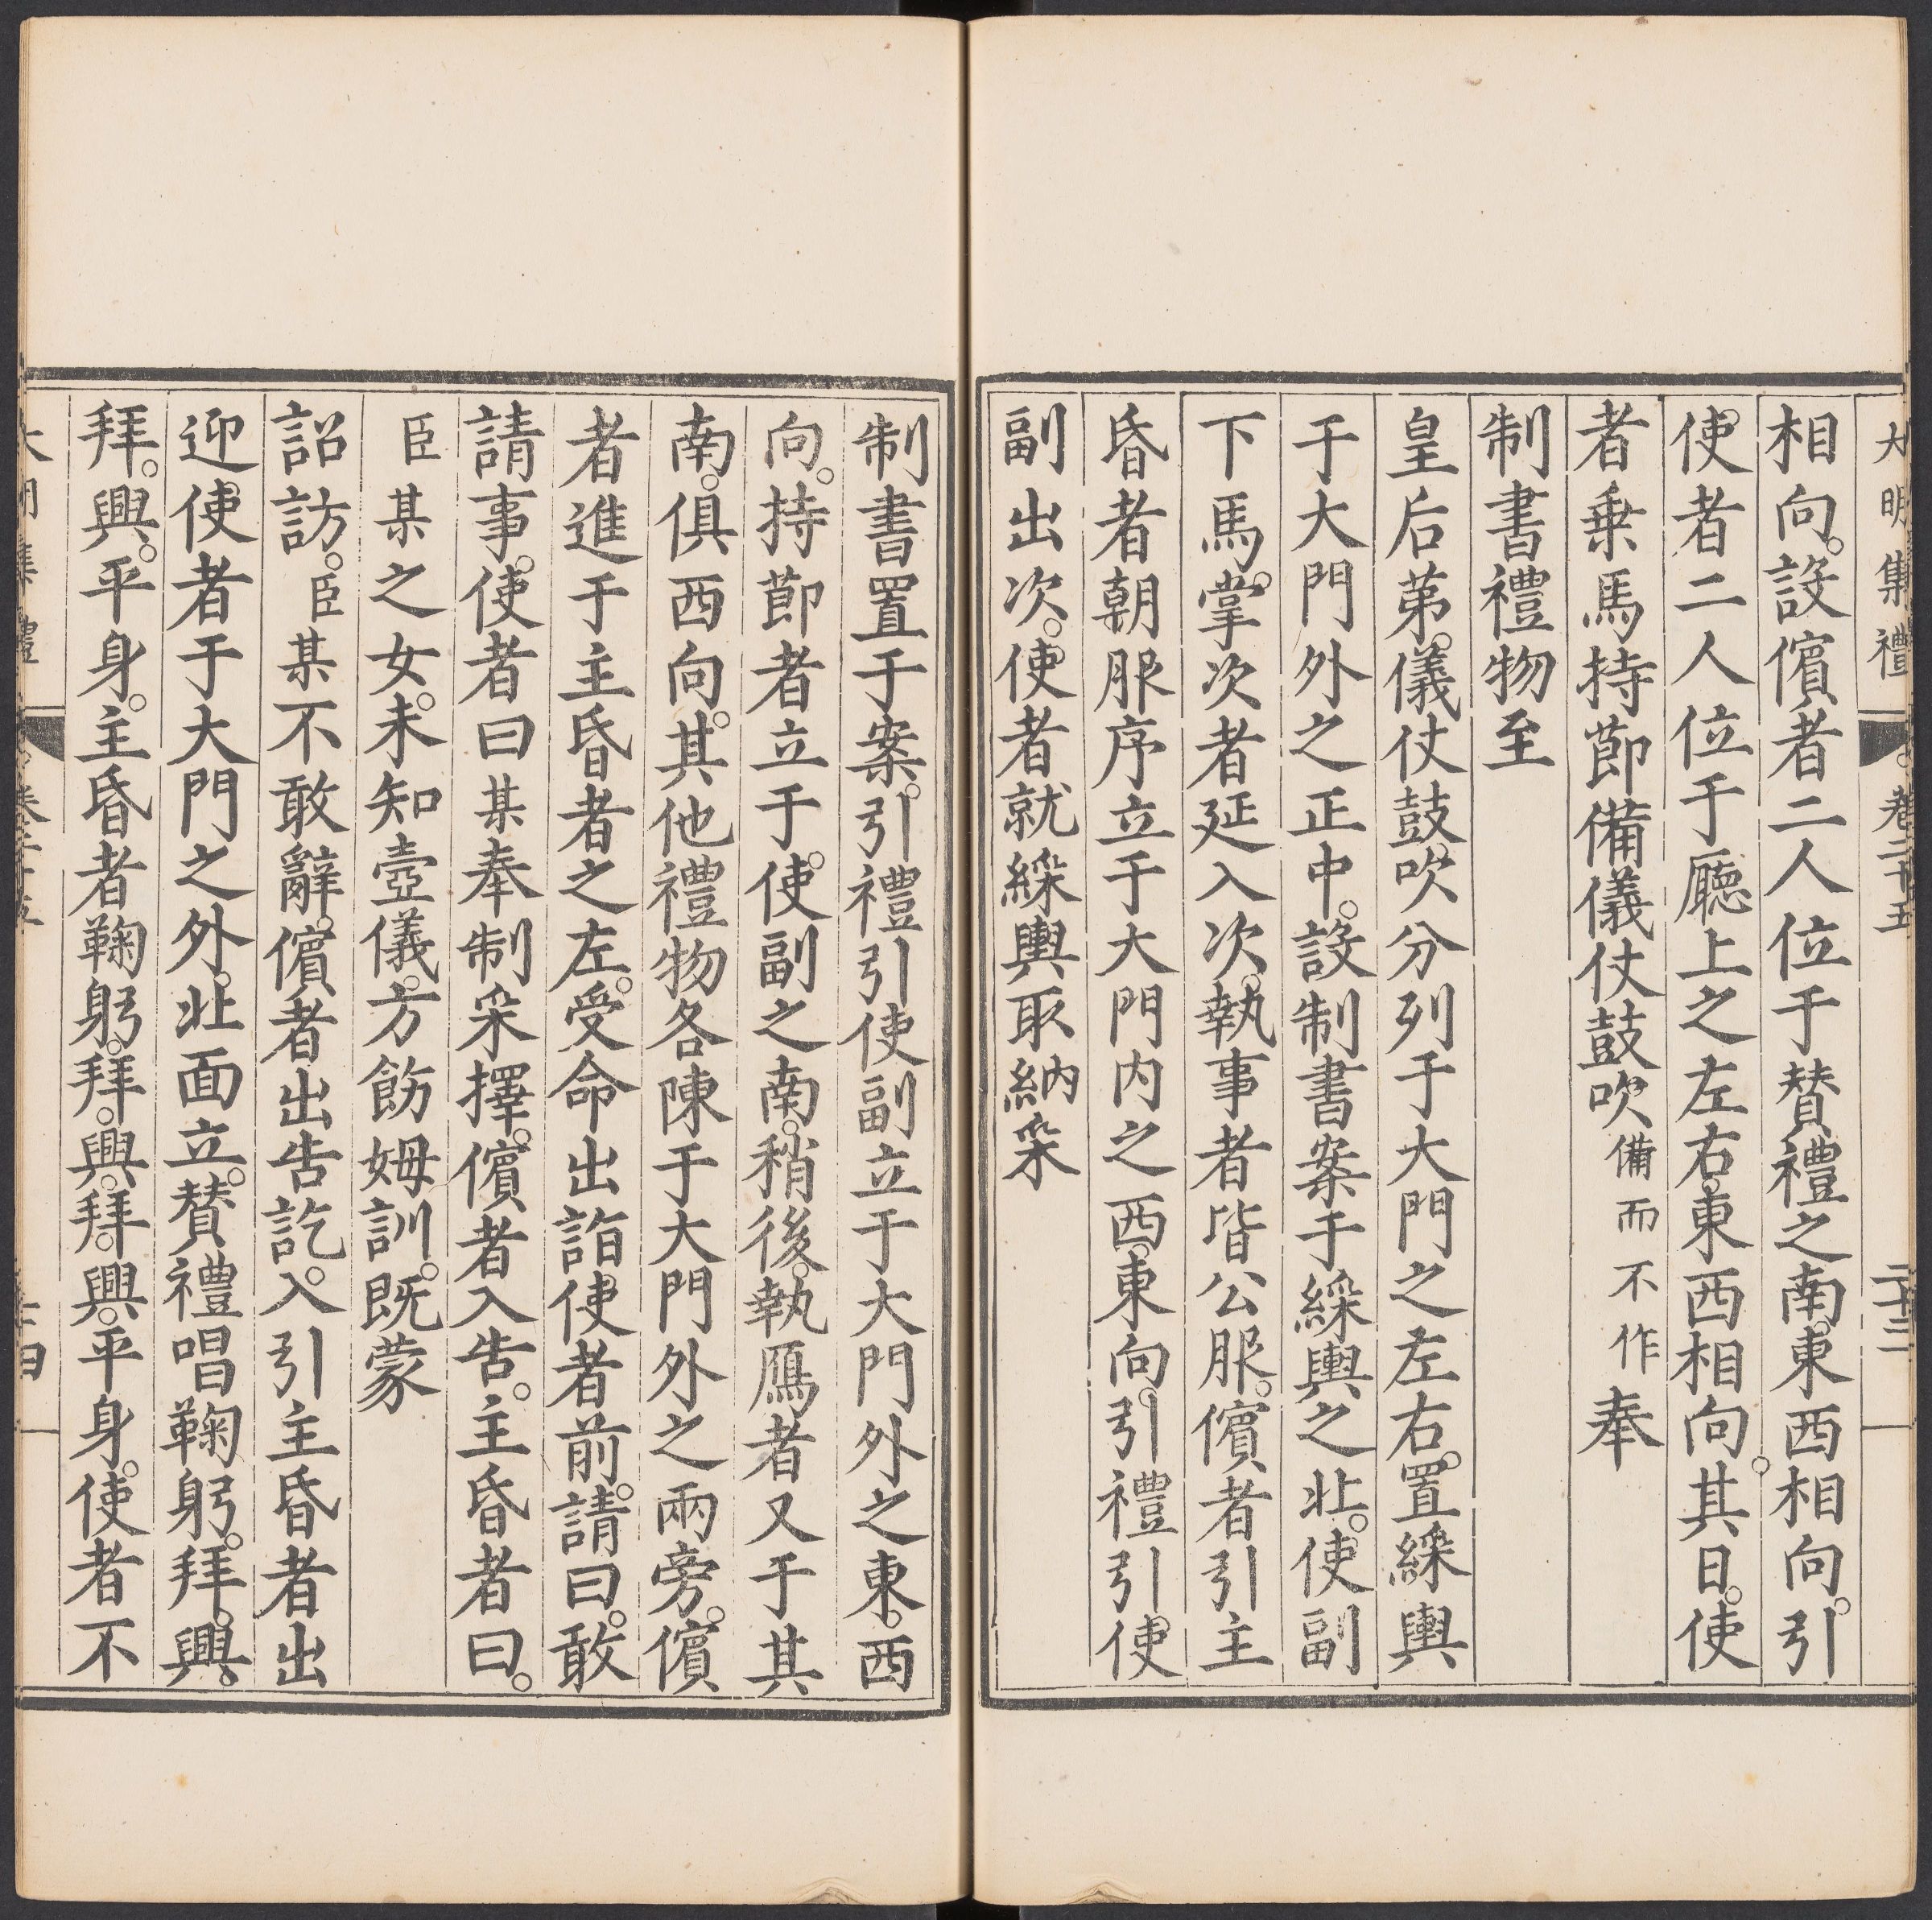 大明集禮 卷二十五 二十三
相向。設儐者二人位于贊禮之南。東西相向。引
使者二人位于廳上之左右。東西相向。其日。使
者乗馬持節備儀仗鼓吹備而不作奉
制書禮物至
皇后苐。儀仗鼓吹分列于大門之左右。置綵輿
于大門外之正中。設制書案于綵輿之北。使副
下馬。掌次者延入次。執事者皆公服。儐者引主
昏者朝服序立于大門内之西。東向。引禮引使
副出次。使者就綵輿取納采
制書置于案。引禮引使副立于大門外之東。西
向。持節者立于使副之南。稍後。執鴈者又于其
南。俱西向。其他禮物各陳于大門外之兩旁。儐
者進于主昏者之左。受命出詣使者前。請曰。敢
請事。使者曰某奉制采擇。儐者入告。主昏者曰。
臣某之女。未知壼儀。方飭姆訓。既蒙
詔訪。臣某不敢辭。儐者出告訖。入引主昏者出
迎使者于大門之外。北面立。贊禮唱鞠躬。拜。興。
拜。興。平身。主昏者鞠躬。拜。興。拜。興。平身。使者不